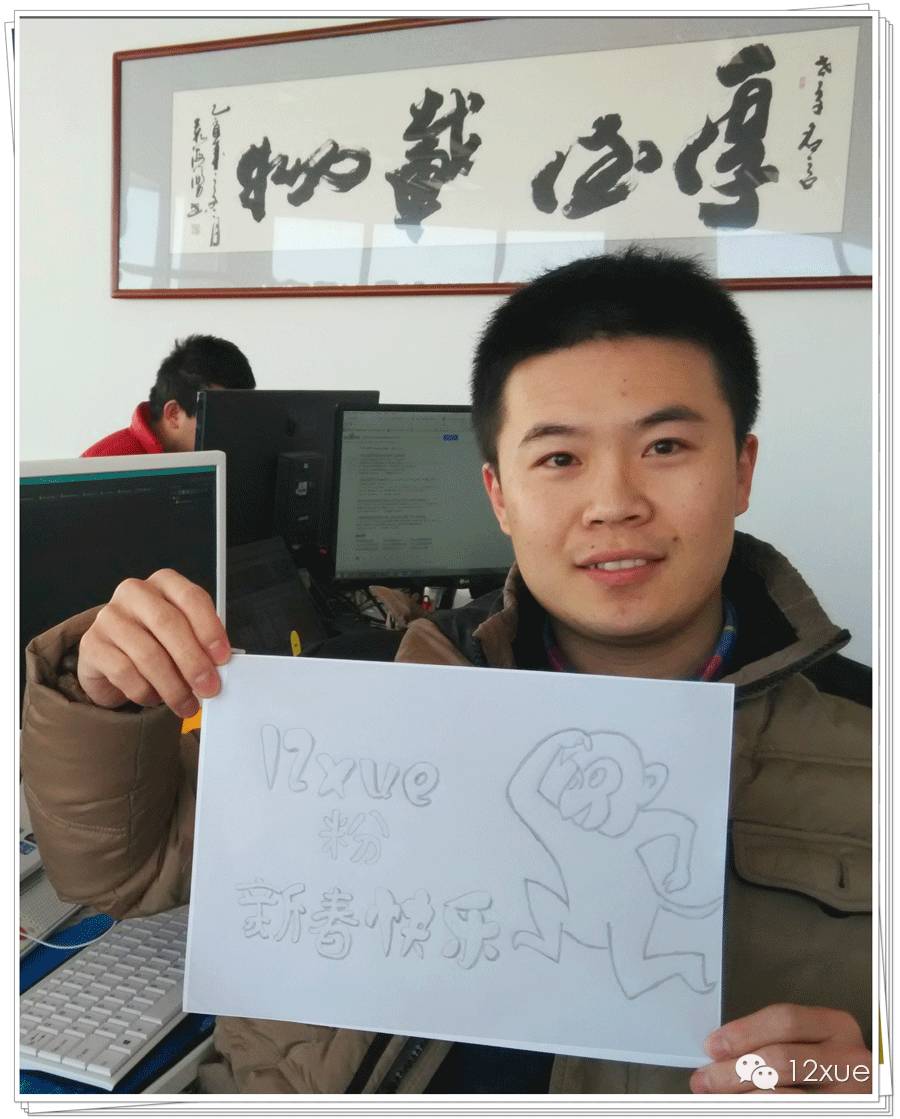 厚德載物
12xue
粉
新春快乐
12xue